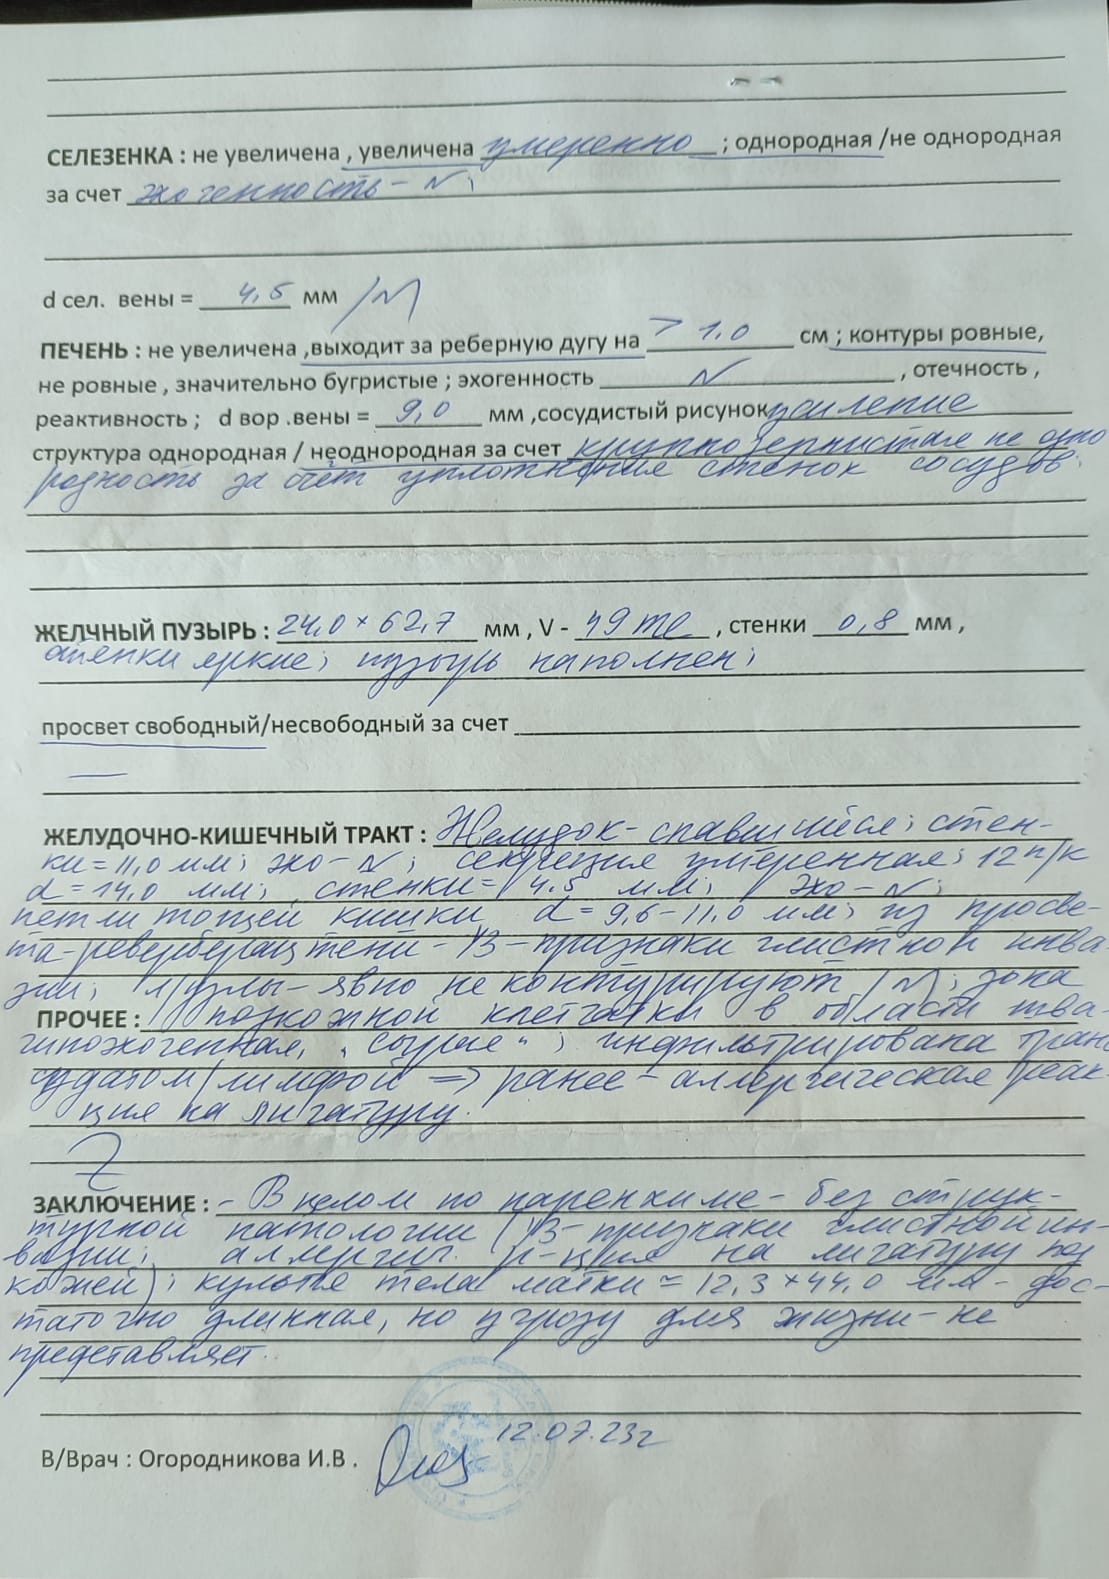 СЕЛЕЗЕНКА : не увеличена , увеличена умеренно ; однородная /не однородная
за счет эхогенность - N;
d сел. вены = 4,5 мм /N
ПЕЧЕНЬ : не увеличена ,выходит за реберную дугу на > 1,0 см ; контуры ровные,
не ровные , значительно бугристые ; эхогенность N , отечность ,
реактивность ; d вор .вены = 9,0 мм ,сосудистый рисунок усиление
структура однородная / неоднородная за счет крупнозернистая не одно
родность за счёт уплотнения стенок сосудов.
ЖЕЛЧНЫЙ ПУЗЫРЬ : 24,0 × 62,7 мм , V - 19 ml , стенки 0,8 мм ,
стенки яркие; пузырь наполнен;
просвет свободный/несвободный за счет
—
ЖЕЛУДОЧНО-КИШЕЧНЫЙ ТРАКТ : Желудок - спавшийся; стен-
ки = 11,0 мм; эхо - N; секреция умеренная; 12 п/к
d = 14,0 мм; стенки = 4,5 мм; эхо - N;
петли тощей кишки d = 9,6 - 11,0 мм; из просве-
та - ревербера тени - УЗ - признаки глистной инва
зии; л/узлы - явно не контурируют /N; зона
ПРОЧЕЕ : подкожной клетчатки в области шва -
гипоэхогенная, "сырые"; инфильтрирована транс
судатом/лимфой => ранее - аллергическая реак-
ция на лигатуру.
ЗАКЛЮЧЕНИЕ : - В целом по паренхиме - без струк-
турной патологии (УЗ - признаки глистной ин-
вазии; аллергич. р-ция на лигатуру под
кожей); культя тела матки ≈ 12,3 × 44,0 мм - дос-
таточно длинная, но угрозу для жизни - не
представляет.
12.07.23г
В/Врач : Огородникова И.В .